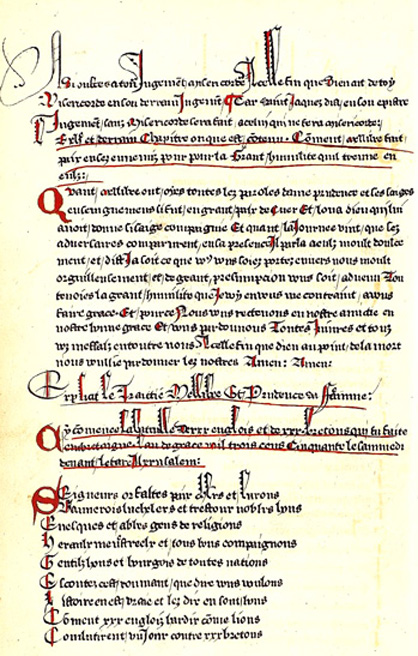 Si oultres a ton Jugement misericorde Icelle fin que Dieu ait de toy
Misericorde en son derrain Jugement Car saint Jaques dist en son epistre
Jugement sans misericorde sera fait a celui qui ne fera misericorde:
Et derrain Chapitre onque est contenu. Coment mellibee fait
paix en ses ennemis pour la Grant humilite quil treuve en
eulx:
Quant mellibee out oyes toutes les paroles dame prudence et ses saiges
enseignemens si fut en grant paix de Cuer Et loua dieu qui lui
avoit donne si saige compaignie Et quant la Journee vint que ses
adversaires comparurent en sa presence Il parla a eulx moult doulce
ment et dist Ja soit ce que vous vous soiez portez envers nous moult
orguilleusement et de grant presumpcion vous soit advenu Tou
tevoies la grant humilite que Je voy en vous me contraint a vous
faire grace Et pource Nous vous recevons en nostre amitie en
nostre bonne grace Et vous pardonnons Toutes Injures et tous
voz meffais encontre nous A celle fin que dieu au point de la mort
nous vueille pardonner les nostres Amen: Amen:
Explicit le Traictie Mellibee Et Prudence sa Femme:
Cy comence la bataille de xxx englois et de xxx bretons qui fu faite
en bretaigne Lan de grace mil trois cens Cinquante le sammedi
devant letare Jherusalem:
Seigneurs or faites paix et Barons
Banneroiz bachelers et trestous nobles hons
Evesques et abbes gens de religions
Heraulx menestreelx et tous bons compaignons
Gentilz hons et bourgois de toutes nations
Escoutez cest roumant que dire vous voulons
Listoire en est vraie et les dix en sont bons
Coment xxx englois hardix come lions
Combatirent un Jour contre xxx bretons